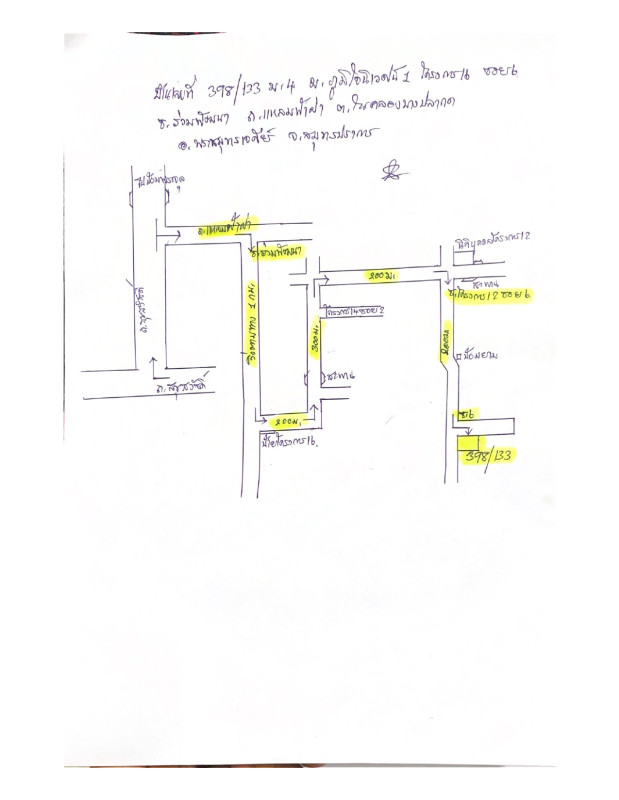 บ้านเลขที่ 398/133 ม.4 ม.ภูมิใจนิเวศน์ 1 โครงการ 16 ซอย 6
ซ.ร่วมพัฒนา ถ.แหลมฟ้าผ่า ต.ในคลองบางปลากด
อ.พระสมุทรเจดีย์ จ.สมุทรปราการ
ถ.แหลมฟ้าผ่า
ซ.ร่วมพัฒนา
ถ.สุขสวัสดิ์
ถ.สุขสวัสดิ์
ตามทาง 1 กม.
200 ม.
300 ม.
โครงการ 14 ซอย 2
สะพาน
200 ม.
ป้ายโครงการ 16
นิติบุคคลโครงการ 12
สะพาน
โครงการ 12 ซอย 6
200 ม.
ป้อมยาม
ซ.6
398/133